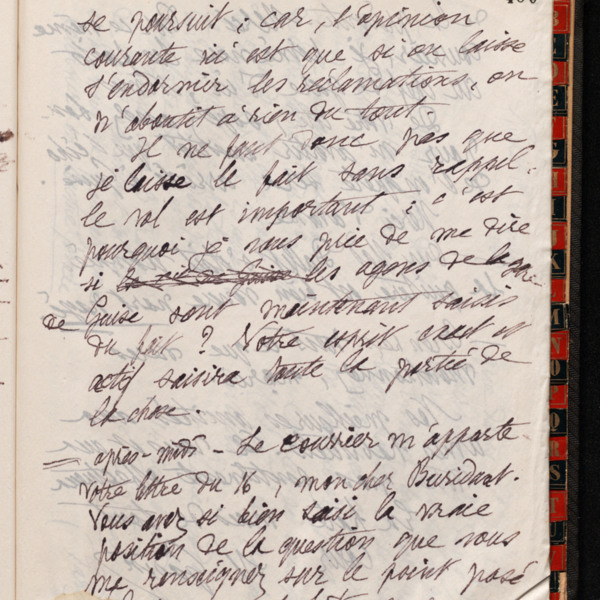 se poursuit ; car, l'opinion
courante ici est que si on laisse
s'endormir les réclamations, on
n'aboutit à rien du tout.
Il ne faut donc pas que
je laisse le fait sans rappel.
le vol est important ; c'est
pourquoi je vous prie de me dire
si les agens de la gare
de Guise sont maintenant saisis
du fait ? Votre esprit exact et
actif saisira toute la portée de
la chose.
après-midi - Le courrier m'apporte
votre lettre du 16, mon cher Buridant.
Vous avez si bien saisi la vraie
position de la question que vous
me renseignez sur le point posé